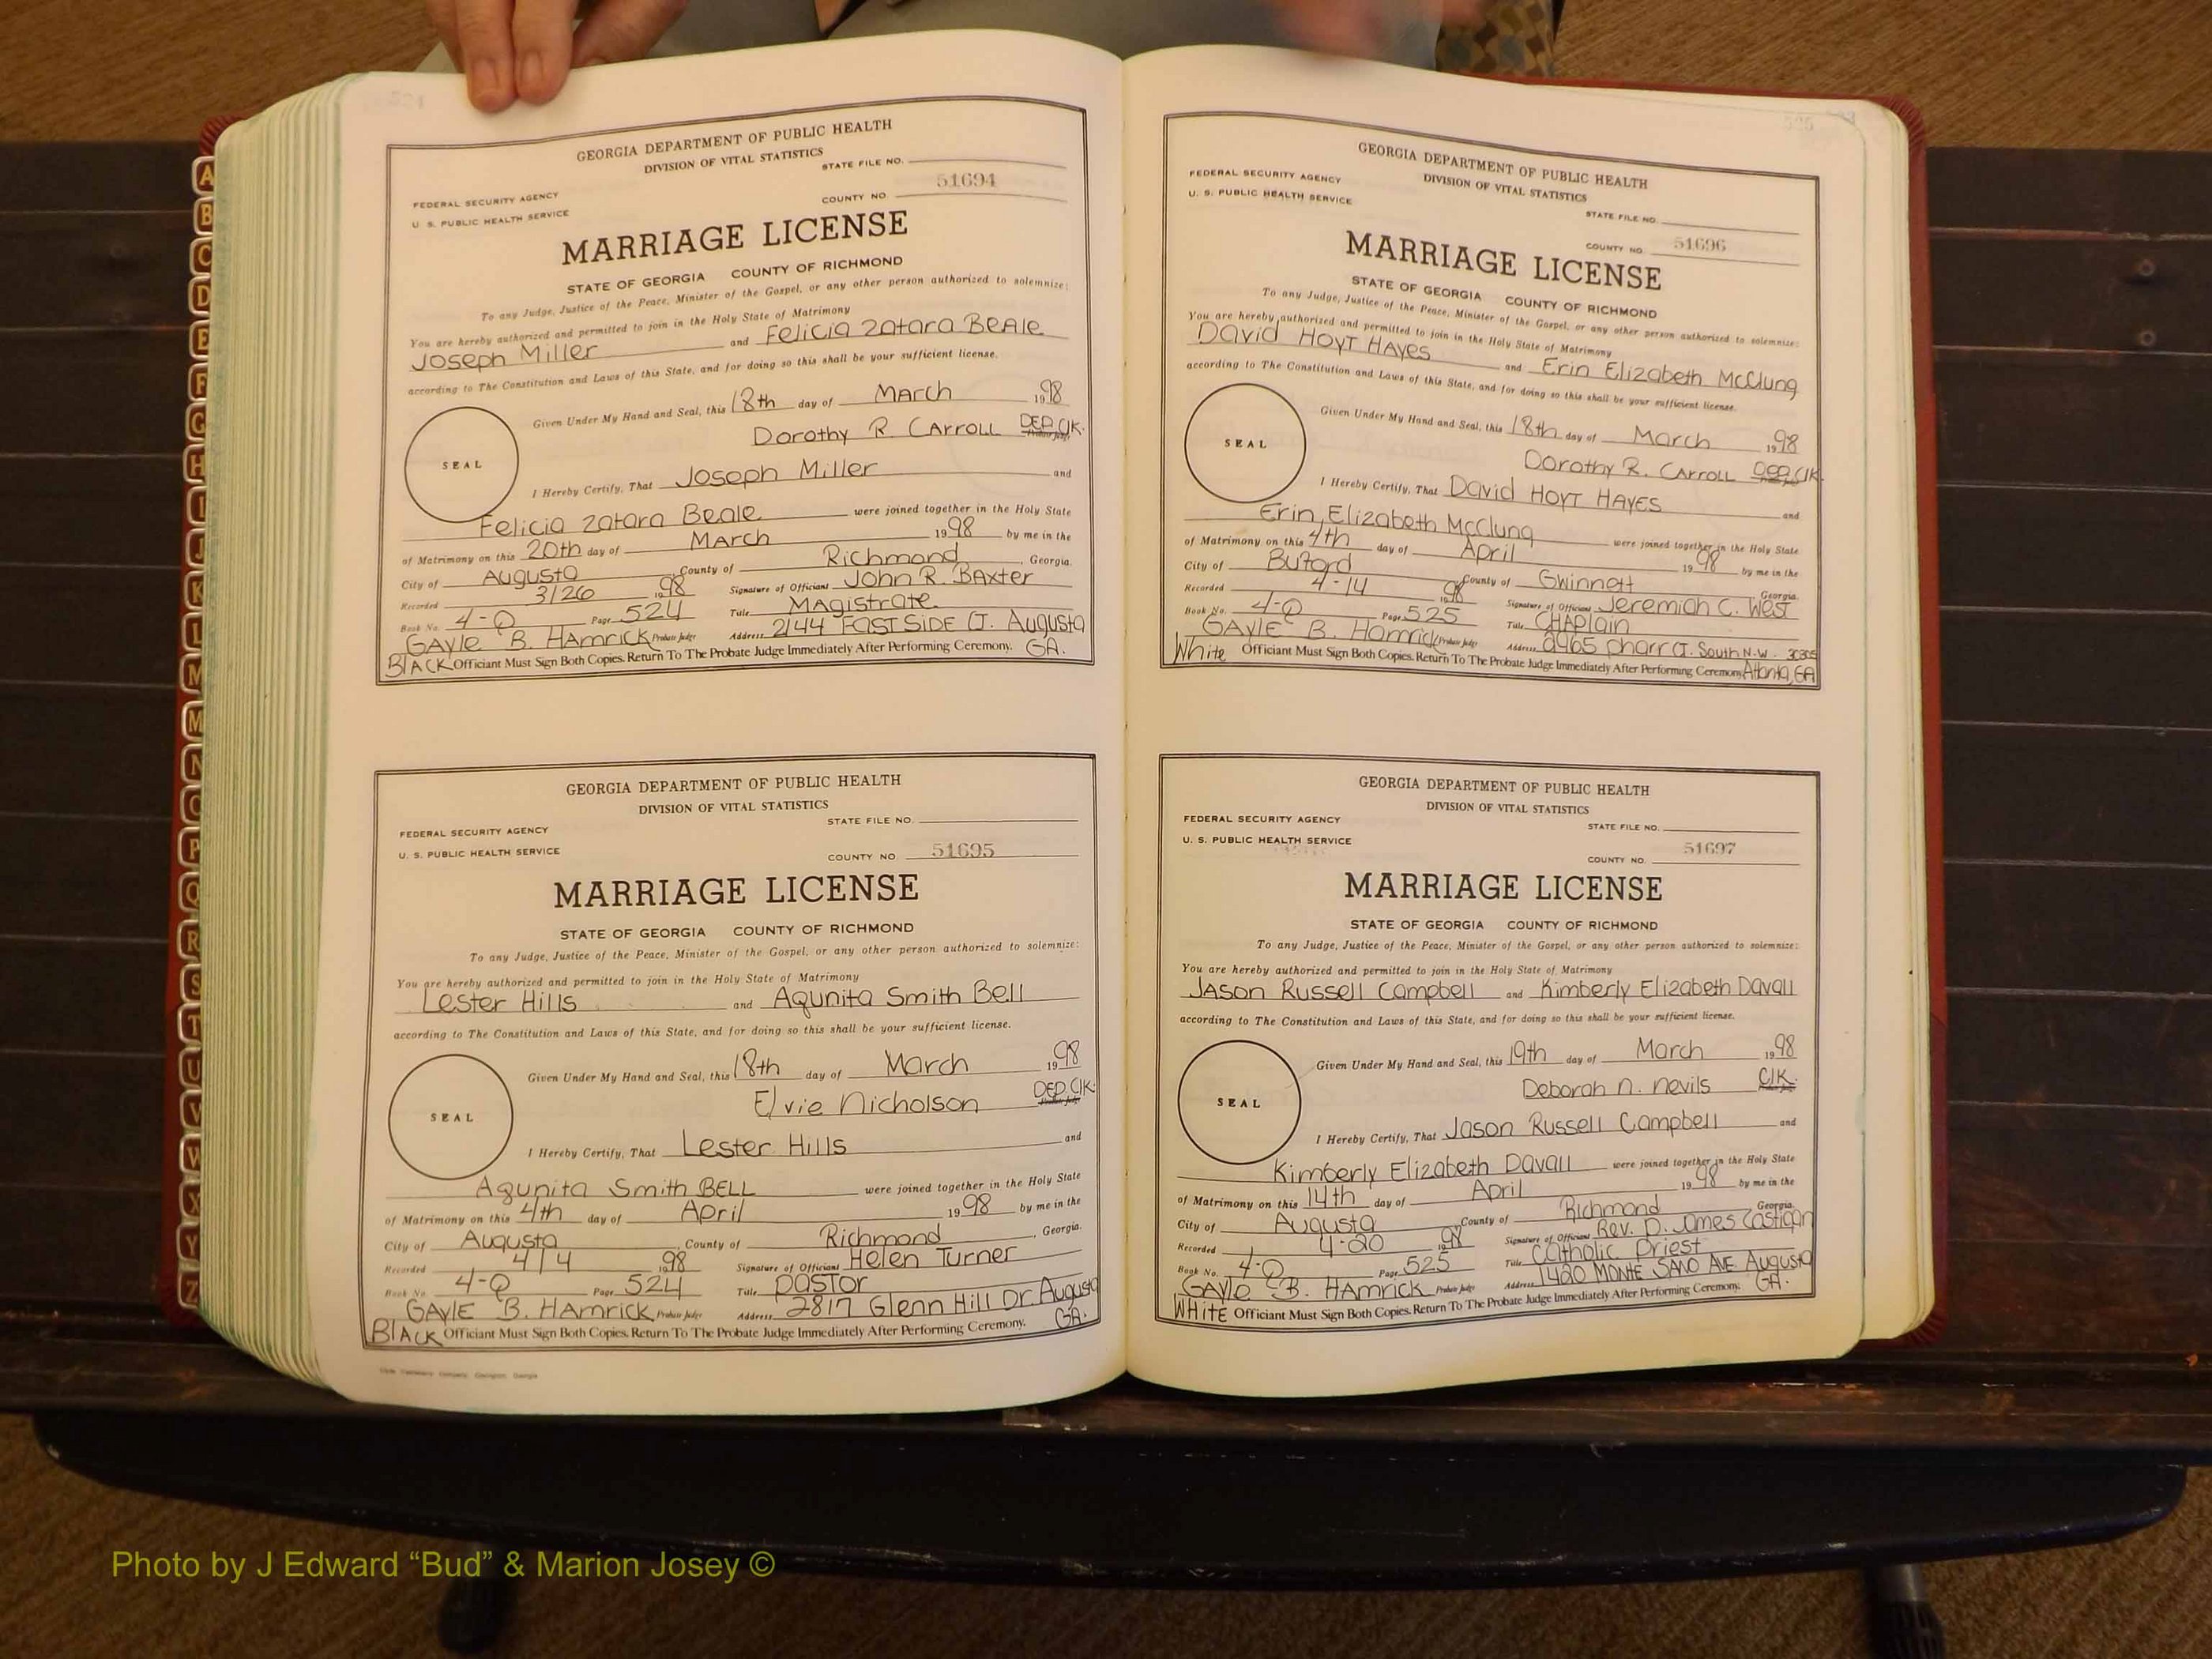 GEORGIA DEPARTMENT OF PUBLIC HEALTH
DIVISION OF VITAL STATISTICS
STATE FILE NO.
FEDERAL SECURITY AGENCY
COUNTY NO. 51694
U. S. PUBLIC HEALTH SERVICE
MARRIAGE LICENSE
STATE OF GEORGIA COUNTY OF RICHMOND
To any Judge, Justice of the Peace, Minister of the Gospel, or any other person authorized to solemnize:
You are hereby authorized and permitted to join in the Holy State of Matrimony
Joseph Miller and Felicia Zatara Beale
according to The Constitution and Laws of this State, and for doing so this shall be your sufficient license.
Given Under My Hand and Seal, this 18th day of March 1998
Dorothy R. Carroll DEP. Clk.
SEAL
I Hereby Certify, That Joseph Miller and
Felicia Zatara Beale were joined together in the Holy State
of Matrimony on this 20th day of March 1998 by me in the
City of Augusta County of Richmond, Georgia.
Recorded 3/26 1998 Signature of Officiant John R. Baxter
Book No. 4-Q Page 524 Title Magistrate
GAYLE B. Hamrick Probate Judge Address 2144 East Side Ct. Augusta
BLACK Officiant Must Sign Both Copies. Return To The Probate Judge Immediately After Performing Ceremony. GA.
GEORGIA DEPARTMENT OF PUBLIC HEALTH
DIVISION OF VITAL STATISTICS
STATE FILE NO.
FEDERAL SECURITY AGENCY
U. S. PUBLIC HEALTH SERVICE
COUNTY NO. 51695
MARRIAGE LICENSE
STATE OF GEORGIA COUNTY OF RICHMOND
To any Judge, Justice of the Peace, Minister of the Gospel, or any other person authorized to solemnize:
You are hereby authorized and permitted to join in the Holy State of Matrimony
Lester Hills and Aqunita Smith Bell
according to The Constitution and Laws of this State, and for doing so this shall be your sufficient license.
Given Under My Hand and Seal, this 18th day of March 1998
Elvie Nicholson DEP. Clk.
SEAL
I Hereby Certify, That Lester Hills and
Aqunita Smith BELL were joined together in the Holy State
of Matrimony on this 4th day of April 1998 by me in the
City of Augusta, County of Richmond, Georgia.
Recorded 4/4 1998 Signature of Officiant Helen Turner
Book No. 4-Q Page 524 Title Pastor
GAYLE B. Hamrick Probate Judge Address 2817 Glenn Hill Dr. Augusta
BLACK Officiant Must Sign Both Copies. Return To The Probate Judge Immediately After Performing Ceremony. GA.
GEORGIA DEPARTMENT OF PUBLIC HEALTH
DIVISION OF VITAL STATISTICS
FEDERAL SECURITY AGENCY
U. S. PUBLIC HEALTH SERVICE
STATE FILE NO.
COUNTY NO. 51696
MARRIAGE LICENSE
STATE OF GEORGIA COUNTY OF RICHMOND
To any Judge, Justice of the Peace, Minister of the Gospel, or any other person authorized to solemnize:
You are hereby authorized and permitted to join in the Holy State of Matrimony
David Hoyt Hayes and Erin Elizabeth McClung
according to The Constitution and Laws of this State, and for doing so this shall be your sufficient license.
Given Under My Hand and Seal, this 18th day of March 1998
Dorothy R. Carroll DEP. Clk.
SEAL
I Hereby Certify, That David Hoyt Hayes and
Erin Elizabeth McClung were joined together in the Holy State
of Matrimony on this 4th day of April 1998 by me in the
City of Buford County of Gwinnett Georgia.
Recorded 4-14 1998 Signature of Officiant Jeremiah C. West
Book No. 4-Q Page 525 Title Chaplain
GAYLE B. Hamrick Probate Judge Address 2465 Pharr Ct. South N.W. 30305
White Officiant Must Sign Both Copies. Return To The Probate Judge Immediately After Performing Ceremony. Atlanta, GA
GEORGIA DEPARTMENT OF PUBLIC HEALTH
DIVISION OF VITAL STATISTICS
FEDERAL SECURITY AGENCY
STATE FILE NO.
U. S. PUBLIC HEALTH SERVICE
COUNTY NO. 51697
MARRIAGE LICENSE
STATE OF GEORGIA COUNTY OF RICHMOND
To any Judge, Justice of the Peace, Minister of the Gospel, or any other person authorized to solemnize:
You are hereby authorized and permitted to join in the Holy State of Matrimony
Jason Russell Campbell and Kimberly Elizabeth Davall
according to The Constitution and Laws of this State, and for doing so this shall be your sufficient license.
Given Under My Hand and Seal, this 19th day of March 1998
Deborah N. Nevils Clk.
SEAL
I Hereby Certify, That Jason Russell Campbell and
Kimberly Elizabeth Davall were joined together in the Holy State
of Matrimony on this 14th day of April 1998 by me in the
City of Augusta County of Richmond Georgia.
Recorded 4-20 1998 Signature of Officiant Rev. D. James Castigan
Book No. 4-Q Page 525 Title Catholic Priest
GAYLE B. HAMRICK Probate Judge Address 1420 MONTE SANO AVE Augusta
WHITE Officiant Must Sign Both Copies. Return To The Probate Judge Immediately After Performing Ceremony. GA.
A
B
C
D
E
F
G
H
I
J
K
L
M
M
N
O
P
Q
R
S
T
U
V
W
X
Y
Z
Photo by J Edward “Bud” & Marion Josey ©